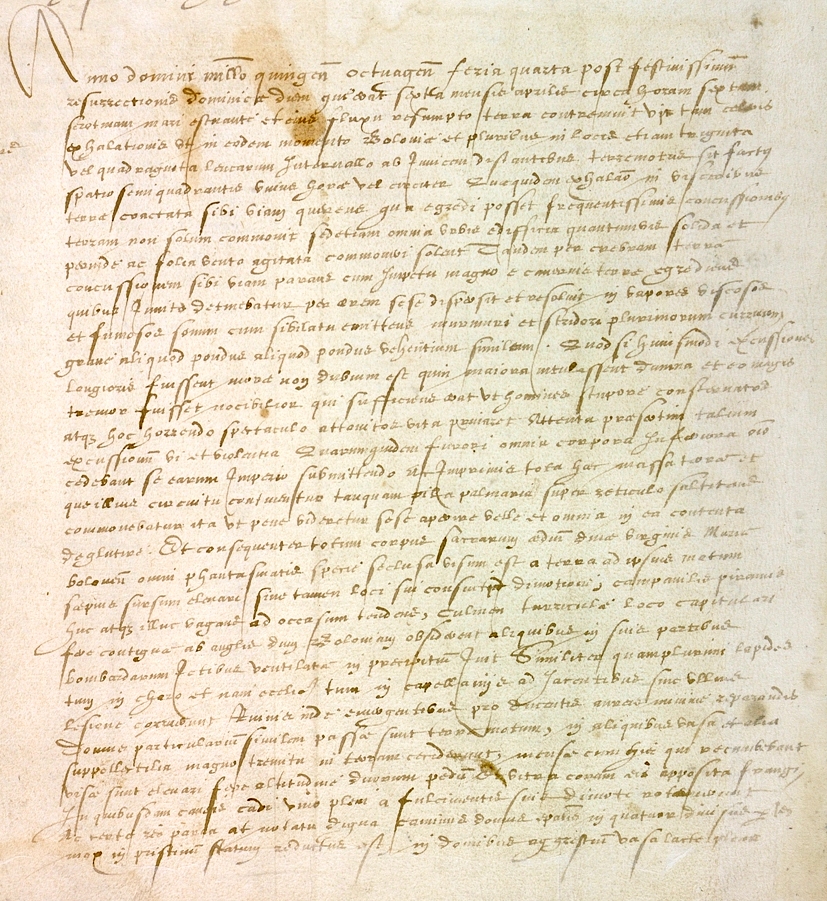 Anno domini millo quingen octuagen feria quarta post festivissimum
resurrectionis dominice diem que erat sexta mensis aprilis circa horam sextam
serotinam mari estuante et eius fluxu resumpto terra contremuit vi
exhalationis ut in eodem momento Bolonie et pluribus in locis etiam triginta
vel quadraginta leucarum Intervallo ab Invicem distantibus terremotus sit factus
spatio semiquadrantis unius hore vel circiter Quequidem exhalao in visceribus
terre coactata sibi viam querens qua egredi posset frequentissimis concussionibus
terram non solum commovit sed etiam omnia urbis edifficia quantumvis solida et
perinde ac folia vento agitata commoveri solent Tandem per crebram terre
concussionem sibi viam parans cum Impetu magno e cavernis terre egrediens
quibus Invite detinebatur per aerem sese dispersit et resoluit in vapores viscosos
et fumosos sonum cum sibilatu emittens murmuri et stridori plurimorum curruum
grave aliquod pondus aliquod pondus vehentium similem. Quod si huiusmodi excussiones
longioris fuissent more non dubium est quin maiora intulissent damna et eo magis
tremor fuisset nocibilior qui sufficiens erat ut homines stupore consternatos
atq3 hoc horrendo spectaculo attonitos vita privaret Attenta presertim talium
excussionum vi et violentia Quarumquidem furori omnia corpora Inferiora
cedebant se earum Imperio submittendo ut Imprimis tota hec massa terre et
que illius circuitu continentur tanquam pila palmaria super reticulo saltitans
commovebatur ita ut pene videretur sese aperire velle et omnia in ea contenta
deglutire. Et consequenter totum corpus sacrarum edium dive virginis Marie
bolonen omni phantasmatis specie seclusa visum est a terra ad ipsius motum
sepius sursum elevari sine tamen loci sui dimotione, campanilis piramis
huc atq3 illuc vagans ad occasum tendens, Culmen turricule loco capitulari
fere contigue ab anglis dum Boloniam obsiderent aliquibus in suis partibus
bombardarum Ictibus ventilate in precipitium Ivit Similiter quamplurimi lapides
tum in choro et navi ecclie tum in capellaniis ad Iacentibus sine ullius
lesione corruerunt Ruinis inde emergentibus pro ducentis aureis minime reparandis
Domus particularium similem passe sunt terremotum, in aliquibus vasa et alia
suppellectilia magno tremitu in terram ceciderunt, mense cum his qui recumbebant
vise sunt elevari fere altitudine duorum pedum Et vitra coram eis apposita frangi,
In quibusdam caveis cadi vino pleni a fulcimentis suis dimoti rotaverunt
Ac certe res parva at notatu digna caminus domus in quatuor divisus
mox in pristinum statum reductus est in domibus aggrestium vasa lacte plena